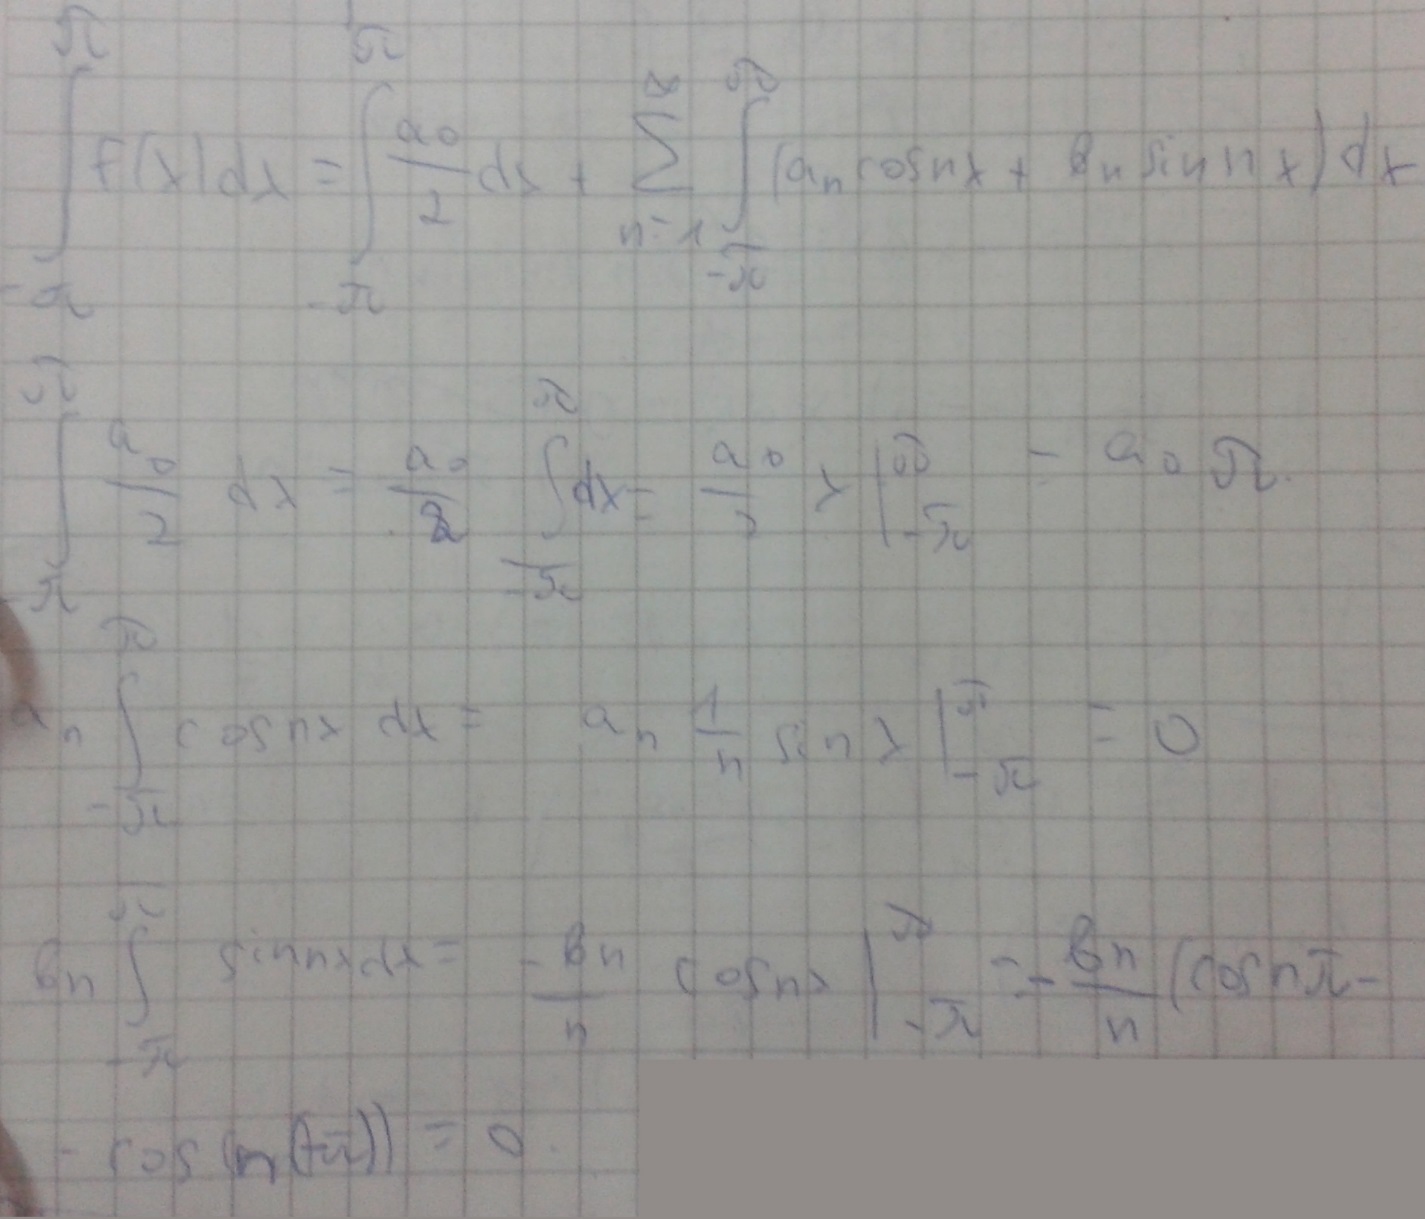 ∫_{-π}^{π} f(x)dx = ∫_{-π}^{π} a₀/2 dx + ∑_{n=1}^{∞} ∫_{-π}^{π} (aₙ cos nx + bₙ sin nx) dx
∫_{-π}^{π} a₀/2 dx = a₀/2 ∫_{-π}^{π} dx = a₀/2 x |_{-π}^{π} = a₀ π.
aₙ ∫_{-π}^{π} cos nx dx = aₙ 1/n sin x |_{-π}^{π} = 0
bₙ ∫_{-π}^{π} sin nx dx = -bₙ/n cos nx |_{-π}^{π} = -bₙ/n (cos nπ -
- cos(n(-π))) = 0.